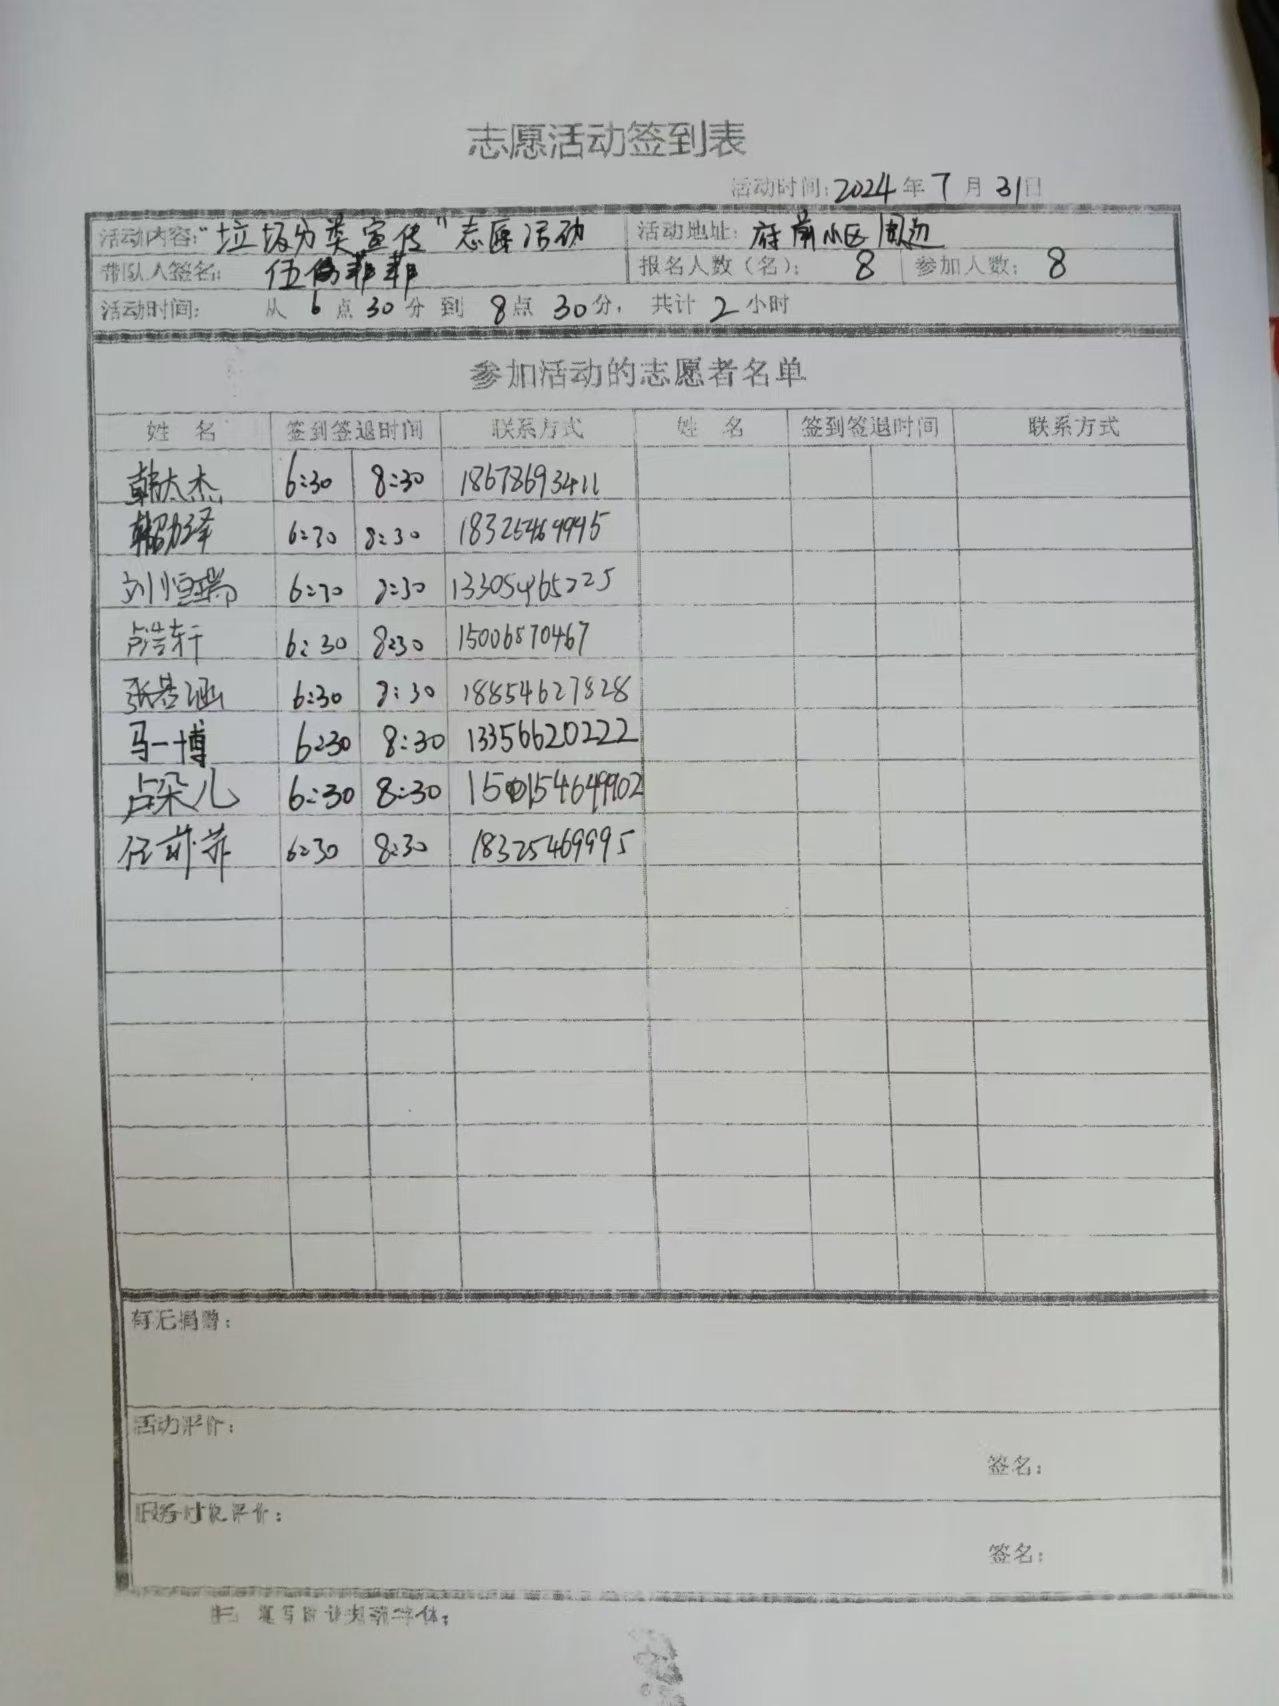 志愿活动签到表
活动时间：2024年7月31日
活动内容："垃圾分类宣传"志愿活动 活动地址：府前小区周边
带队人签名： 报名人数（名）：8 参加人数：8
活动时间： 从6点30分到8点30分，共计2小时
参加活动的志愿者名单
姓 名 签到签退时间 联系方式 姓 名 签到签退时间 联系方式
韩太杰 6:30 8:30 18678693411
6:30 8:30
刘恒瑞 6:30 8:30
卢浩轩 6:30 8:30 15006870467
6:30 8:30 18854627828
马一博 6:30 8:30 13356620222
卢朵儿 6:30 8:30
任菲菲 6:30 8:30 18325469995
有无捐赠：
活动评价：
签名：
服务对象评价：
签名：